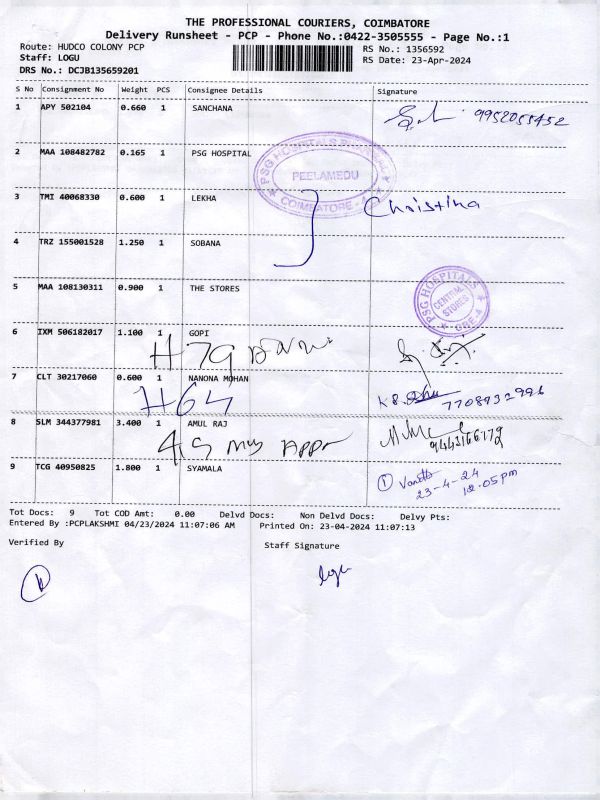 THE PROFESSIONAL COURIERS, COIMBATORE
Delivery Runsheet - PCP - Phone No.:0422-3505555 - Page No.:1
Route: HUDCO COLONY PCP RS No.: 1356592
Staff: LOGU RS Date: 23-Apr-2024
DRS No.: DCJB135659201
S No Consignment No Weight PCS Consignee Details Signature
1 APY 502104 0.660 1 SANCHANA 9952055452
2 MAA 108482782 0.165 1 PSG HOSPITAL
PSG HOSPITALS
PEELAMEDU
COIMBATORE - 4
3 TMI 40068330 0.600 1 LEKHA Christina
4 TRZ 155001528 1.250 1 SOBANA
5 MAA 108130311 0.900 1 THE STORES
PSG HOSPITALS
CENTRAL STORES
CBE-4
6 IXM 506182017 1.100 1 GOPI
H 79
7 CLT 30217060 0.600 1 NANONA MOHAN
H64 7708932996
8 SLM 344377981 3.400 1 AMUL RAJ
9443166779
9 TCG 40950825 1.800 1 SYAMALA
23-4-24
12.05pm
Tot Docs: 9 Tot COD Amt: 0.00 Delvd Docs: Non Delvd Docs: Delvy Pts:
Entered By :PCPLAKSHMI 04/23/2024 11:07:06 AM Printed On: 23-04-2024 11:07:13
Verified By Staff Signature